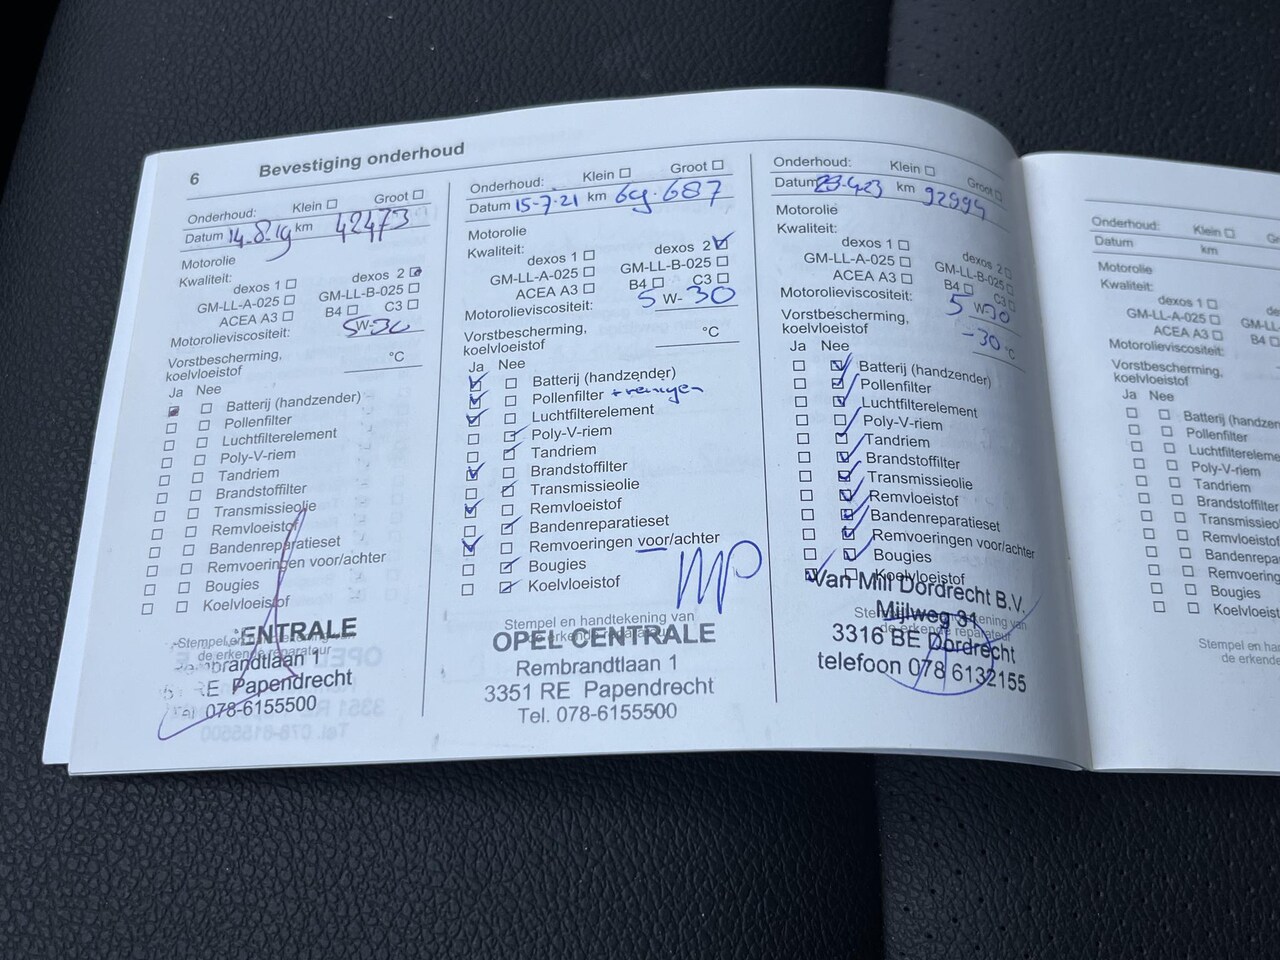 6 Bevestiging onderhoud
Onderhoud: Klein Groot
Datum 14.8.19 km 42473
Motorolie
Kwaliteit:
dexos 1 dexos 2
GM-LL-A-025 GM-LL-B-025
ACEA A3 B4 C3
Motorolieviscositeit: 5W-30
Vorstbescherming,
koelvloeistof °C
Ja Nee
Batterij (handzender)
Pollenfilter
Luchtfilterelement
Poly-V-riem
Tandriem
Brandstoffilter
Transmissieolie
Remvloeistof
Bandenreparatieset
Remvoeringen voor/achter
Bougies
Koelvloeistof
Stempel en handtekening van
de erkende reparateur
ENTRALE
Rembrandtlaan 1
RE Papendrecht
Tel. 078-6155500
Onderhoud: Klein Groot
Datum 15-7-21 km 69.687
Motorolie
Kwaliteit:
dexos 1 dexos 2
GM-LL-A-025 GM-LL-B-025
ACEA A3 B4 C3
Motorolieviscositeit: 5 W-30
Vorstbescherming,
koelvloeistof °C
Ja Nee
Batterij (handzender)
Pollenfilter + reinigen
Luchtfilterelement
Poly-V-riem
Tandriem
Brandstoffilter
Transmissieolie
Remvloeistof
Bandenreparatieset
Remvoeringen voor/achter
Bougies
Koelvloeistof
Stempel en handtekening van
de erkende reparateur
OPEL CENTRALE
Rembrandtlaan 1
3351 RE Papendrecht
Tel. 078-6155500
Onderhoud: Klein Groot
Datum km 92994
Motorolie
Kwaliteit:
dexos 1 dexos 2
GM-LL-A-025 GM-LL-B-025
ACEA A3 B4 C3
Motorolieviscositeit: 5 W-30
Vorstbescherming,
koelvloeistof -30 °C
Ja Nee
Batterij (handzender)
Pollenfilter
Luchtfilterelement
Poly-V-riem
Tandriem
Brandstoffilter
Transmissieolie
Remvloeistof
Bandenreparatieset
Remvoeringen voor/achter
Bougies
Koelvloeistof
Stempel en handtekening van
de erkende reparateur
Van Mill Dordrecht B.V.
Mijlweg 31
3316 BE Dordrecht
telefoon 078 6132155
Onderhoud: Klein
Datum km
Motorolie
Kwaliteit:
dexos 1
GM-LL-A-025 GM-LL
ACEA A3 B4
Motorolieviscositeit:
Vorstbescherming,
koelvloeistof
Ja Nee
Batterij (handzen
Pollenfilter
Luchtfiltereleme
Poly-V-riem
Tandriem
Brandstoffilter
Transmissieo
Remvloeistof
Bandenrepa
Remvoering
Bougies
Koelvloeist
Stempel en ha
de erkende